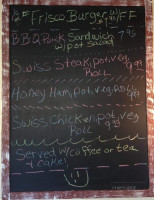 Frisco Burger w/FF
BBQ Pork Sandwich 7.95
w/pot salad
Swiss Steak, pot, veg,
Roll
Honey Ham, pot, veg, Roll
Swiss Chicken, pot, veg
Roll
Served w/coffee or tea
+ cake!